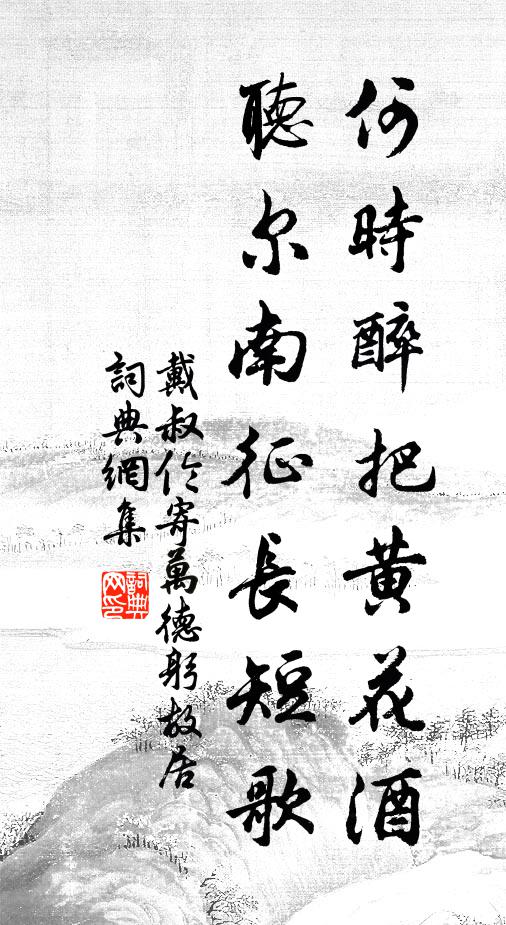 何時醉把黄花酒
聽尔南征長短歌
戴叔伦寄萬德躬故居
詞典網集
詞典
网印